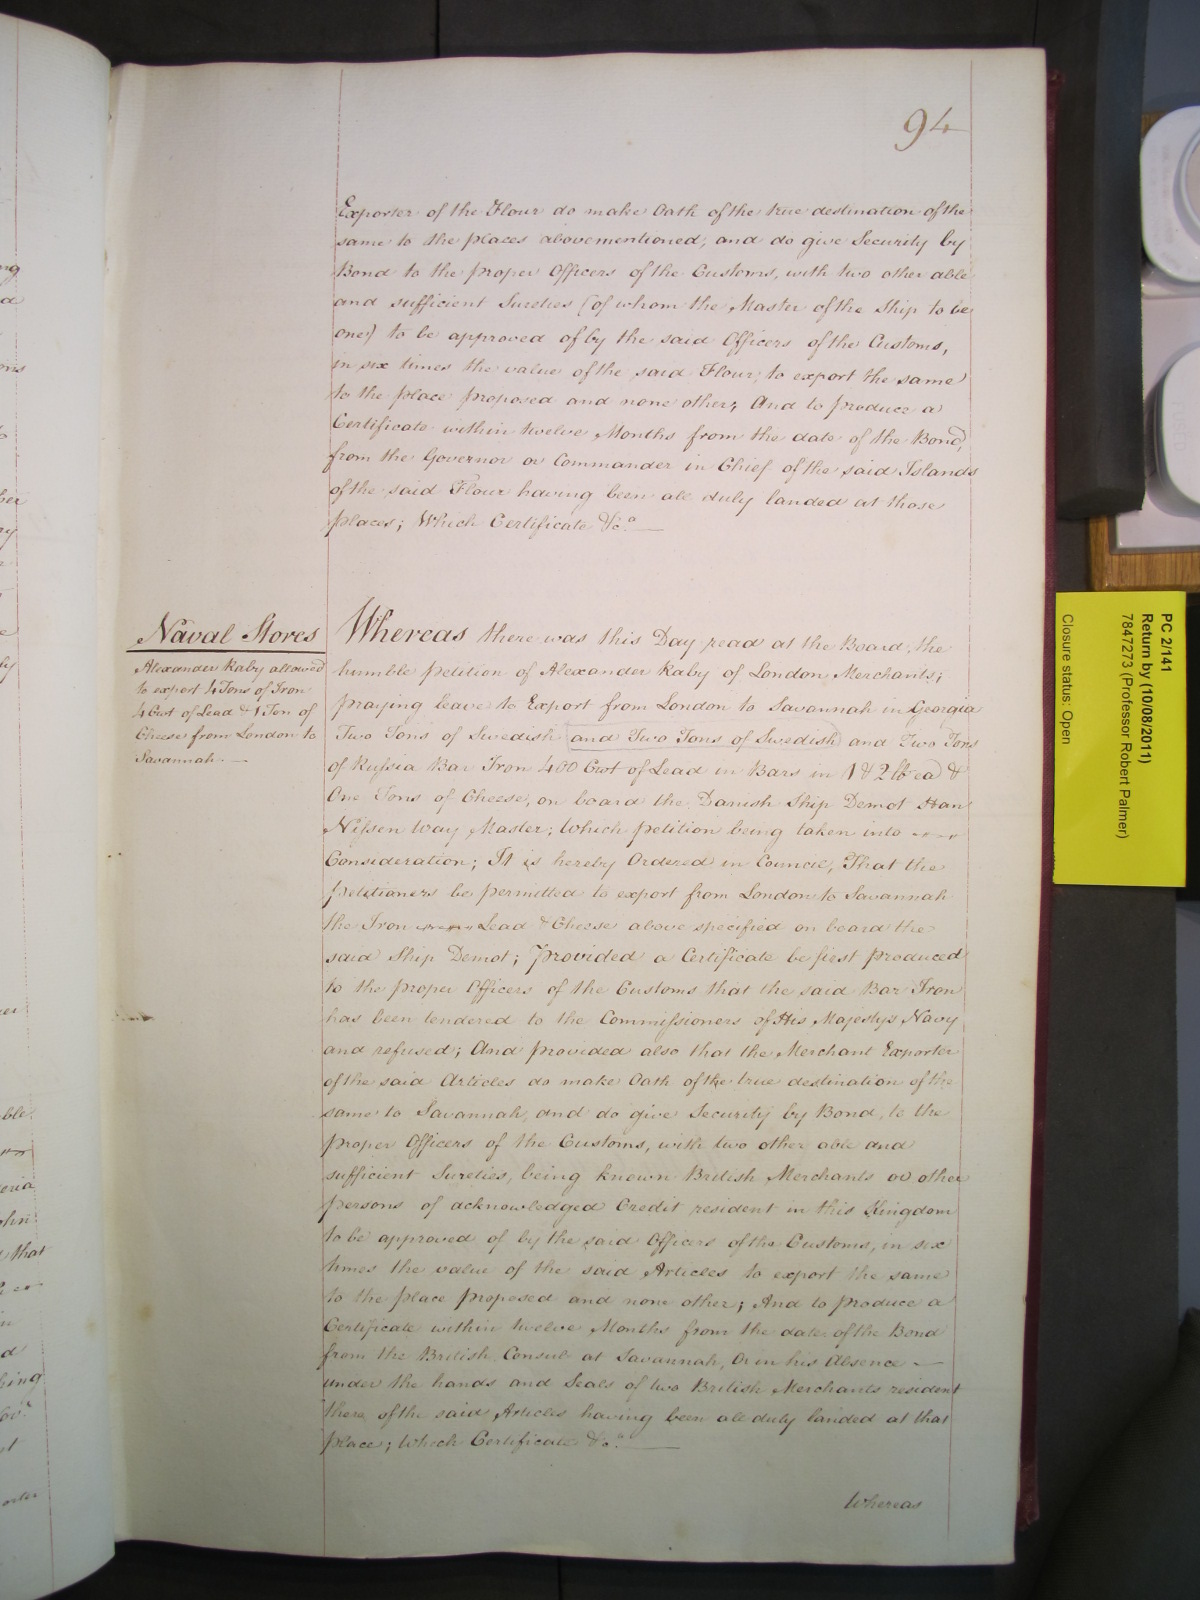 94
Exporter of the Flour do make Oath of the true destination of the
same to the places abovementioned; and do give Security by
Bond to the proper Officers of the Customs, with two other able
and sufficient Sureties (of whom the Master of the Ship to be
one) to be approved of by the said Officers of the Customs,
in six times the value of the said Flour; to export the same
to the place proposed and none other; And to produce a
Certificate within twelve Months from the date of the Bond,
from the Governor or Commander in Chief of the said Islands
of the said Flour having been all duly landed at those
places; Which Certificate &c.a
Naval Stores
Alexander Raby allowed
to export 4 Tons of Iron
4 Cwt of Lead & 1 Ton of
Cheese from London to
Savannah.
Whereas there was this Day read at the Board, the
humble petition of Alexander Raby of London Merchants;
praying leave to Export from London to Savannah in Georgia
Two Tons of Swedish and Two Tons of Swedish and Two Tons
of Russia Bar Iron 400 Cwt of Lead in Bars in 1 & 2 lb ea &
One Tons of Cheese, on board the Danish Ship Demot Han
Nissen Way Master; Which petition being taken into
Consideration; It is hereby Ordered in Council, That the
petitioners be permitted to export from London to Savannah
the Iron Lead & Cheese above specified on board the
said Ship Demot; Provided a Certificate be first produced
to the proper Officers of the Customs that the said Bar Iron
has been tendered to the Commissioners of His Majestys Navy
and refused; And provided also that the Merchant Exporter
of the said Articles do make Oath of the true destination of the
same to Savannah, and do give Security by Bond, to the
proper Officers of the Customs, with two other able and
sufficient Sureties, being known British Merchants or other
persons of acknowledged Credit resident in this Kingdom
to be approved of by the said Officers of the Customs, in six
times the value of the said Articles to export the same
to the place proposed and none other; And to produce a
Certificate within twelve Months from the date of the Bond
from the British Consul at Savannah, Or in his Absence
under the hands and Seals of two British Merchants resident
there of the said Articles having been all duly landed at that
place; Which Certificate &c.a
Whereas
PC 2/141
Return by (10/08/2011)
7847273 (Professor Robert Palmer)
Closure status: Open